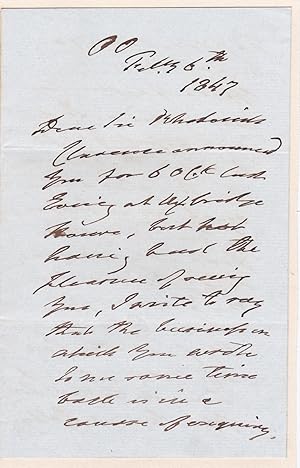 OO
Feb 6th
1847
Dear Sir
announced
you for 6 OCk last
Evening at Uxbridge
House, but not
having had the
pleasure of seeing
you, I write to say
that the business on
which you wrote
to me some time
back is in a
course of enquiry,